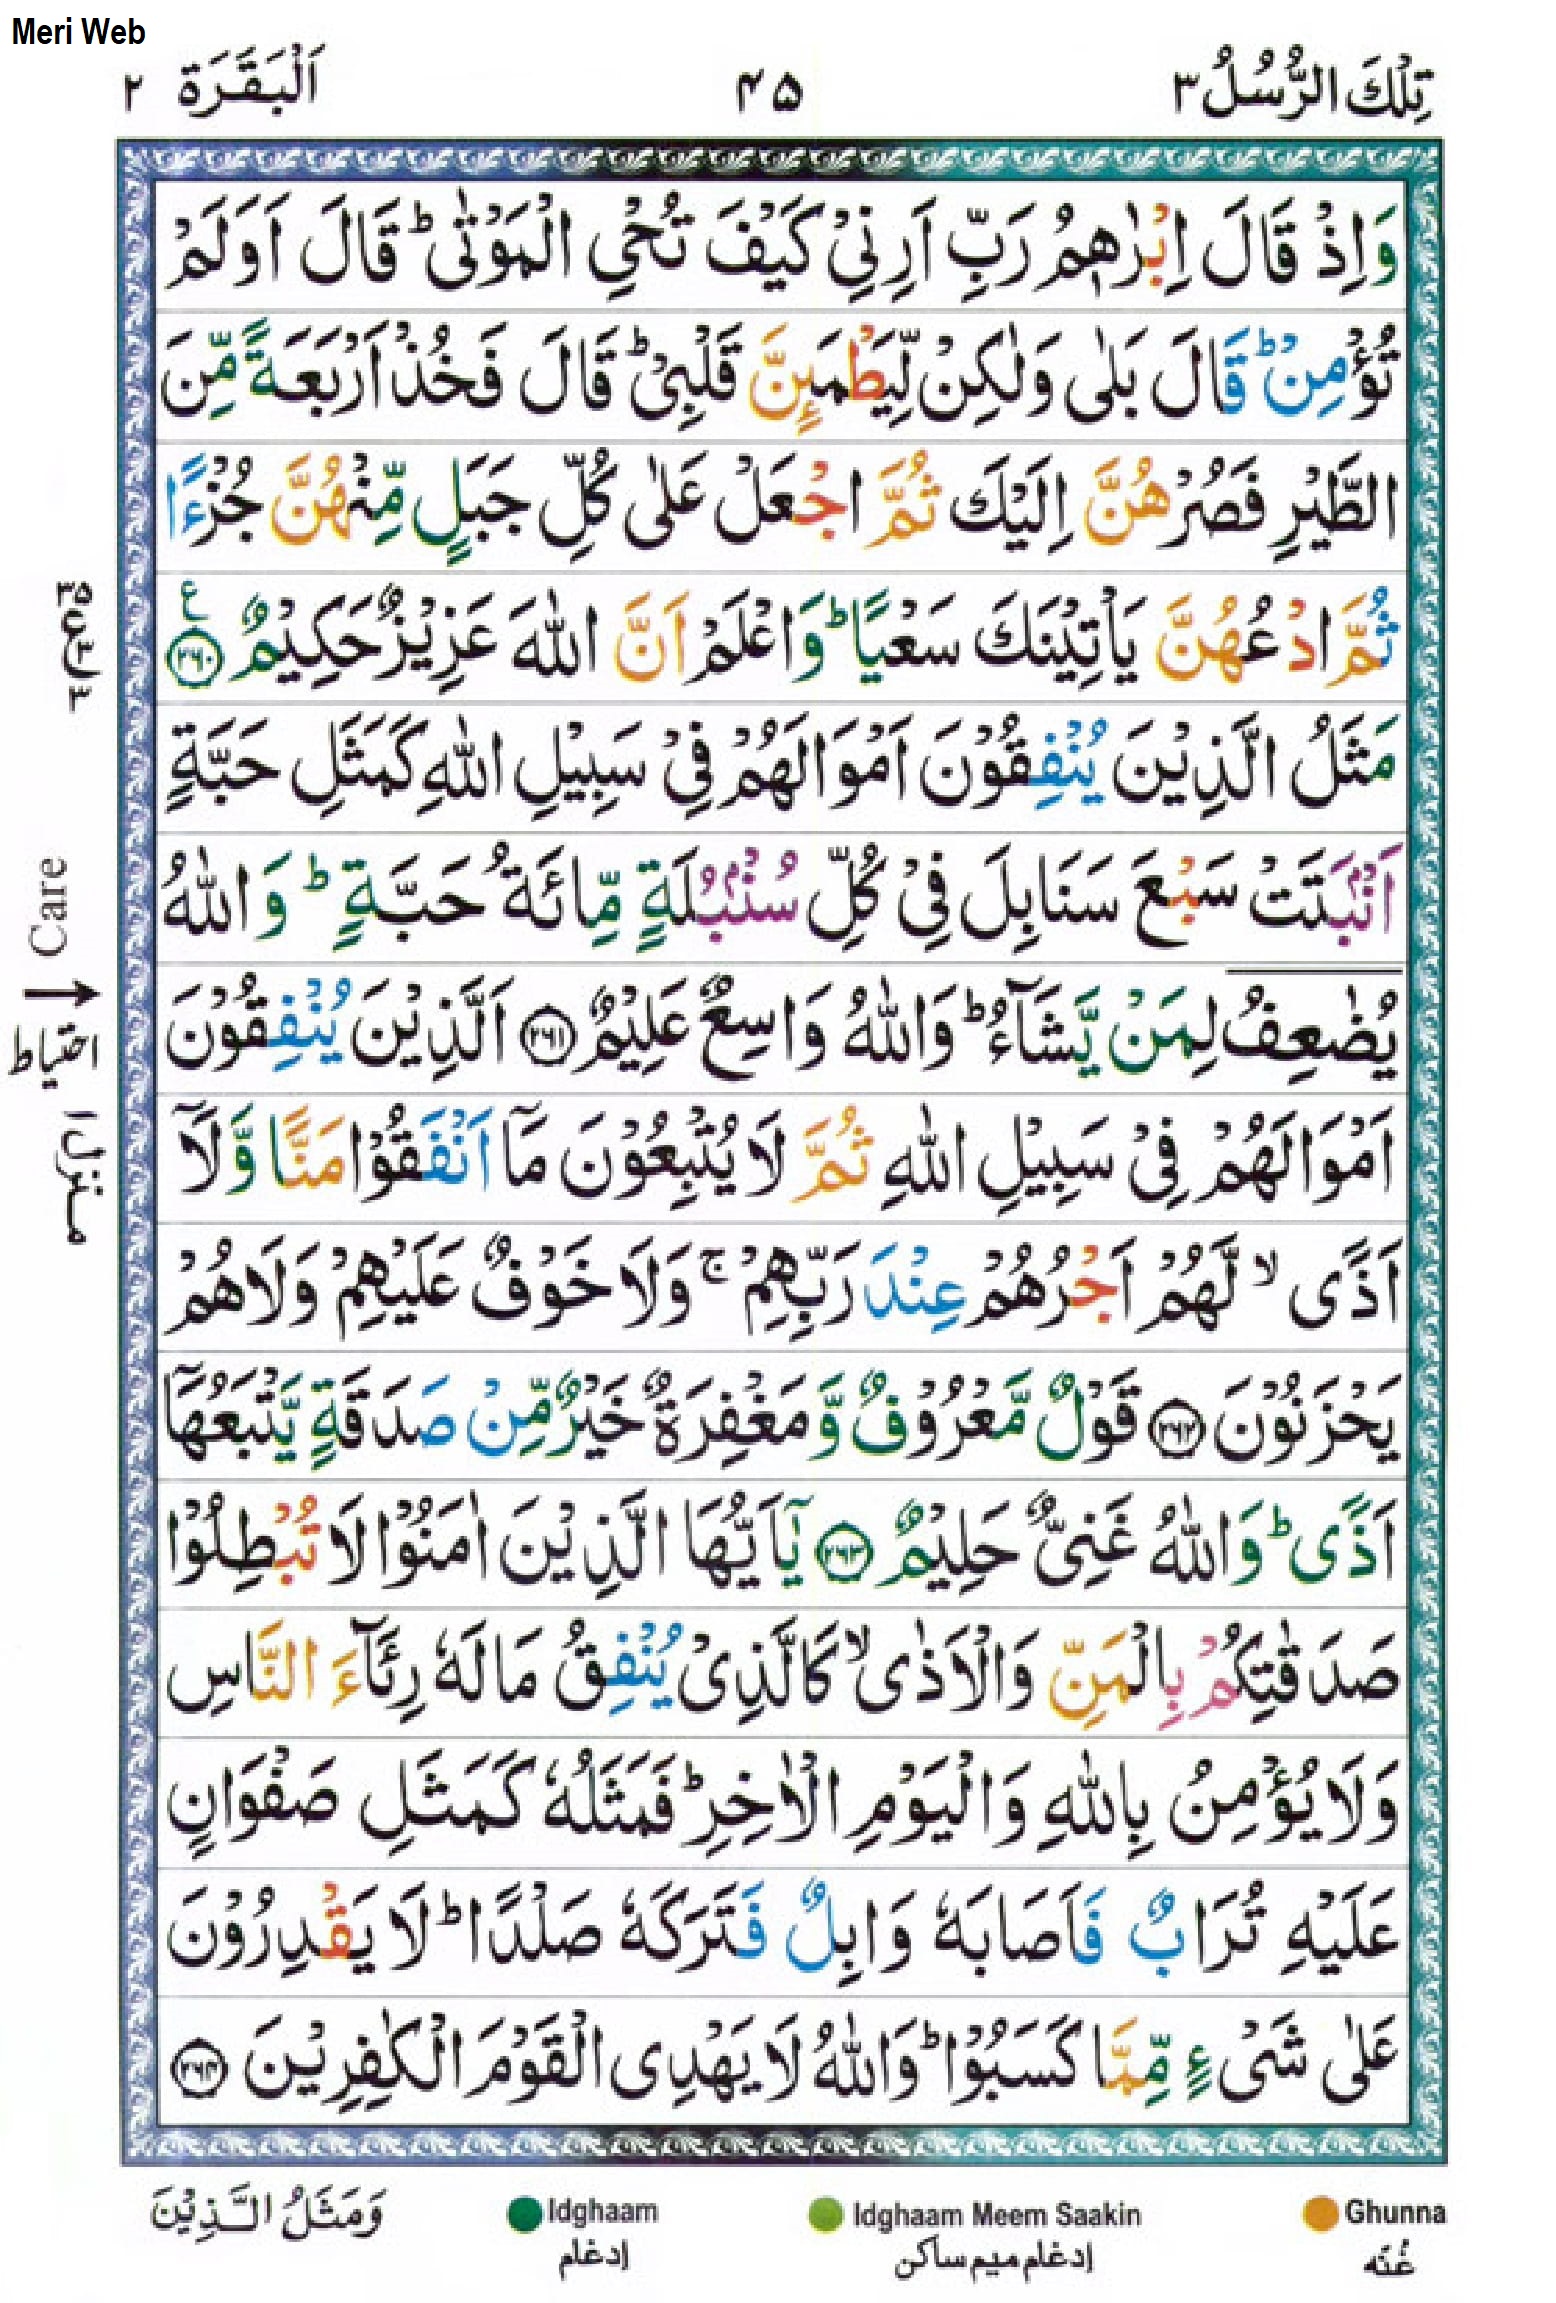 Meri Web
تِلْكَ الرُّسُلُ ٣
٤٥
اَلْبَقَرَة ٢
وَاِذْ قَالَ اِبْرٰهٖمُ رَبِّ اَرِنِیْ كَیْفَ تُحْیِ الْمَوْتٰیؕ قَالَ اَوَلَمْ
تُؤْمِنْؕ قَالَ بَلٰی وَلٰكِنْ لِّیَطْمَىِٕنَّ قَلْبِیْؕ قَالَ فَخُذْ اَرْبَعَةً مِّنَ
الطَّیْرِ فَصُرْهُنَّ اِلَیْكَ ثُمَّ اجْعَلْ عَلٰی كُلِّ جَبَلٍ مِّنْهُنَّ جُزْءًا
ثُمَّ ادْعُهُنَّ یَاْتِیْنَكَ سَعْیًاؕ وَاعْلَمْ اَنَّ اللّٰهَ عَزِیْزٌ حَكِیْمٌ ﴿۲۶۰﴾ ع
مَثَلُ الَّذِیْنَ یُنْفِقُوْنَ اَمْوَالَهُمْ فِیْ سَبِیْلِ اللّٰهِ كَمَثَلِ حَبَّةٍ
اَنْۢبَتَتْ سَبْعَ سَنَابِلَ فِیْ كُلِّ سُنْۢبُلَةٍ مِّائَةُ حَبَّةٍؕ وَاللّٰهُ
یُضٰعِفُ لِمَنْ یَّشَآءُؕ وَاللّٰهُ وَاسِعٌ عَلِیْمٌ ﴿۲۶۱﴾ اَلَّذِیْنَ یُنْفِقُوْنَ
اَمْوَالَهُمْ فِیْ سَبِیْلِ اللّٰهِ ثُمَّ لَا یُتْبِعُوْنَ مَاۤ اَنْفَقُوْا مَنًّا وَّلَاۤ
اَذًیۙ لَّهُمْ اَجْرُهُمْ عِنْدَ رَبِّهِمْۚ وَلَا خَوْفٌ عَلَیْهِمْ وَلَا هُمْ
یَحْزَنُوْنَ ﴿۲۶۲﴾ قَوْلٌ مَّعْرُوْفٌ وَّمَغْفِرَةٌ خَیْرٌ مِّنْ صَدَقَةٍ یَّتْبَعُهَاۤ
اَذًیؕ وَاللّٰهُ غَنِیٌّ حَلِیْمٌ ﴿۲۶۳﴾ یٰۤاَیُّهَا الَّذِیْنَ اٰمَنُوْا لَا تُبْطِلُوْا
صَدَقٰتِكُمْ بِالْمَنِّ وَالْاَذٰیۙ كَالَّذِیْ یُنْفِقُ مَالَهٗ رِئَآءَ النَّاسِ
وَلَا یُؤْمِنُ بِاللّٰهِ وَالْیَوْمِ الْاٰخِرِؕ فَمَثَلُهٗ كَمَثَلِ صَفْوَانٍ
عَلَیْهِ تُرَابٌ فَاَصَابَهٗ وَابِلٌ فَتَرَكَهٗ صَلْدًاؕ لَا یَقْدِرُوْنَ
عَلٰی شَیْءٍ مِّمَّا كَسَبُوْاؕ وَاللّٰهُ لَا یَهْدِی الْقَوْمَ الْكٰفِرِیْنَ ﴿۲۶۴﴾
٣٥
ع
٣
Care
احتیاط
منزل ١
وَمَثَلُ الَّذِیْنَ
Idghaam
إدغام
Idghaam Meem Saakin
إدغام میم ساکن
Ghunna
غُنّه